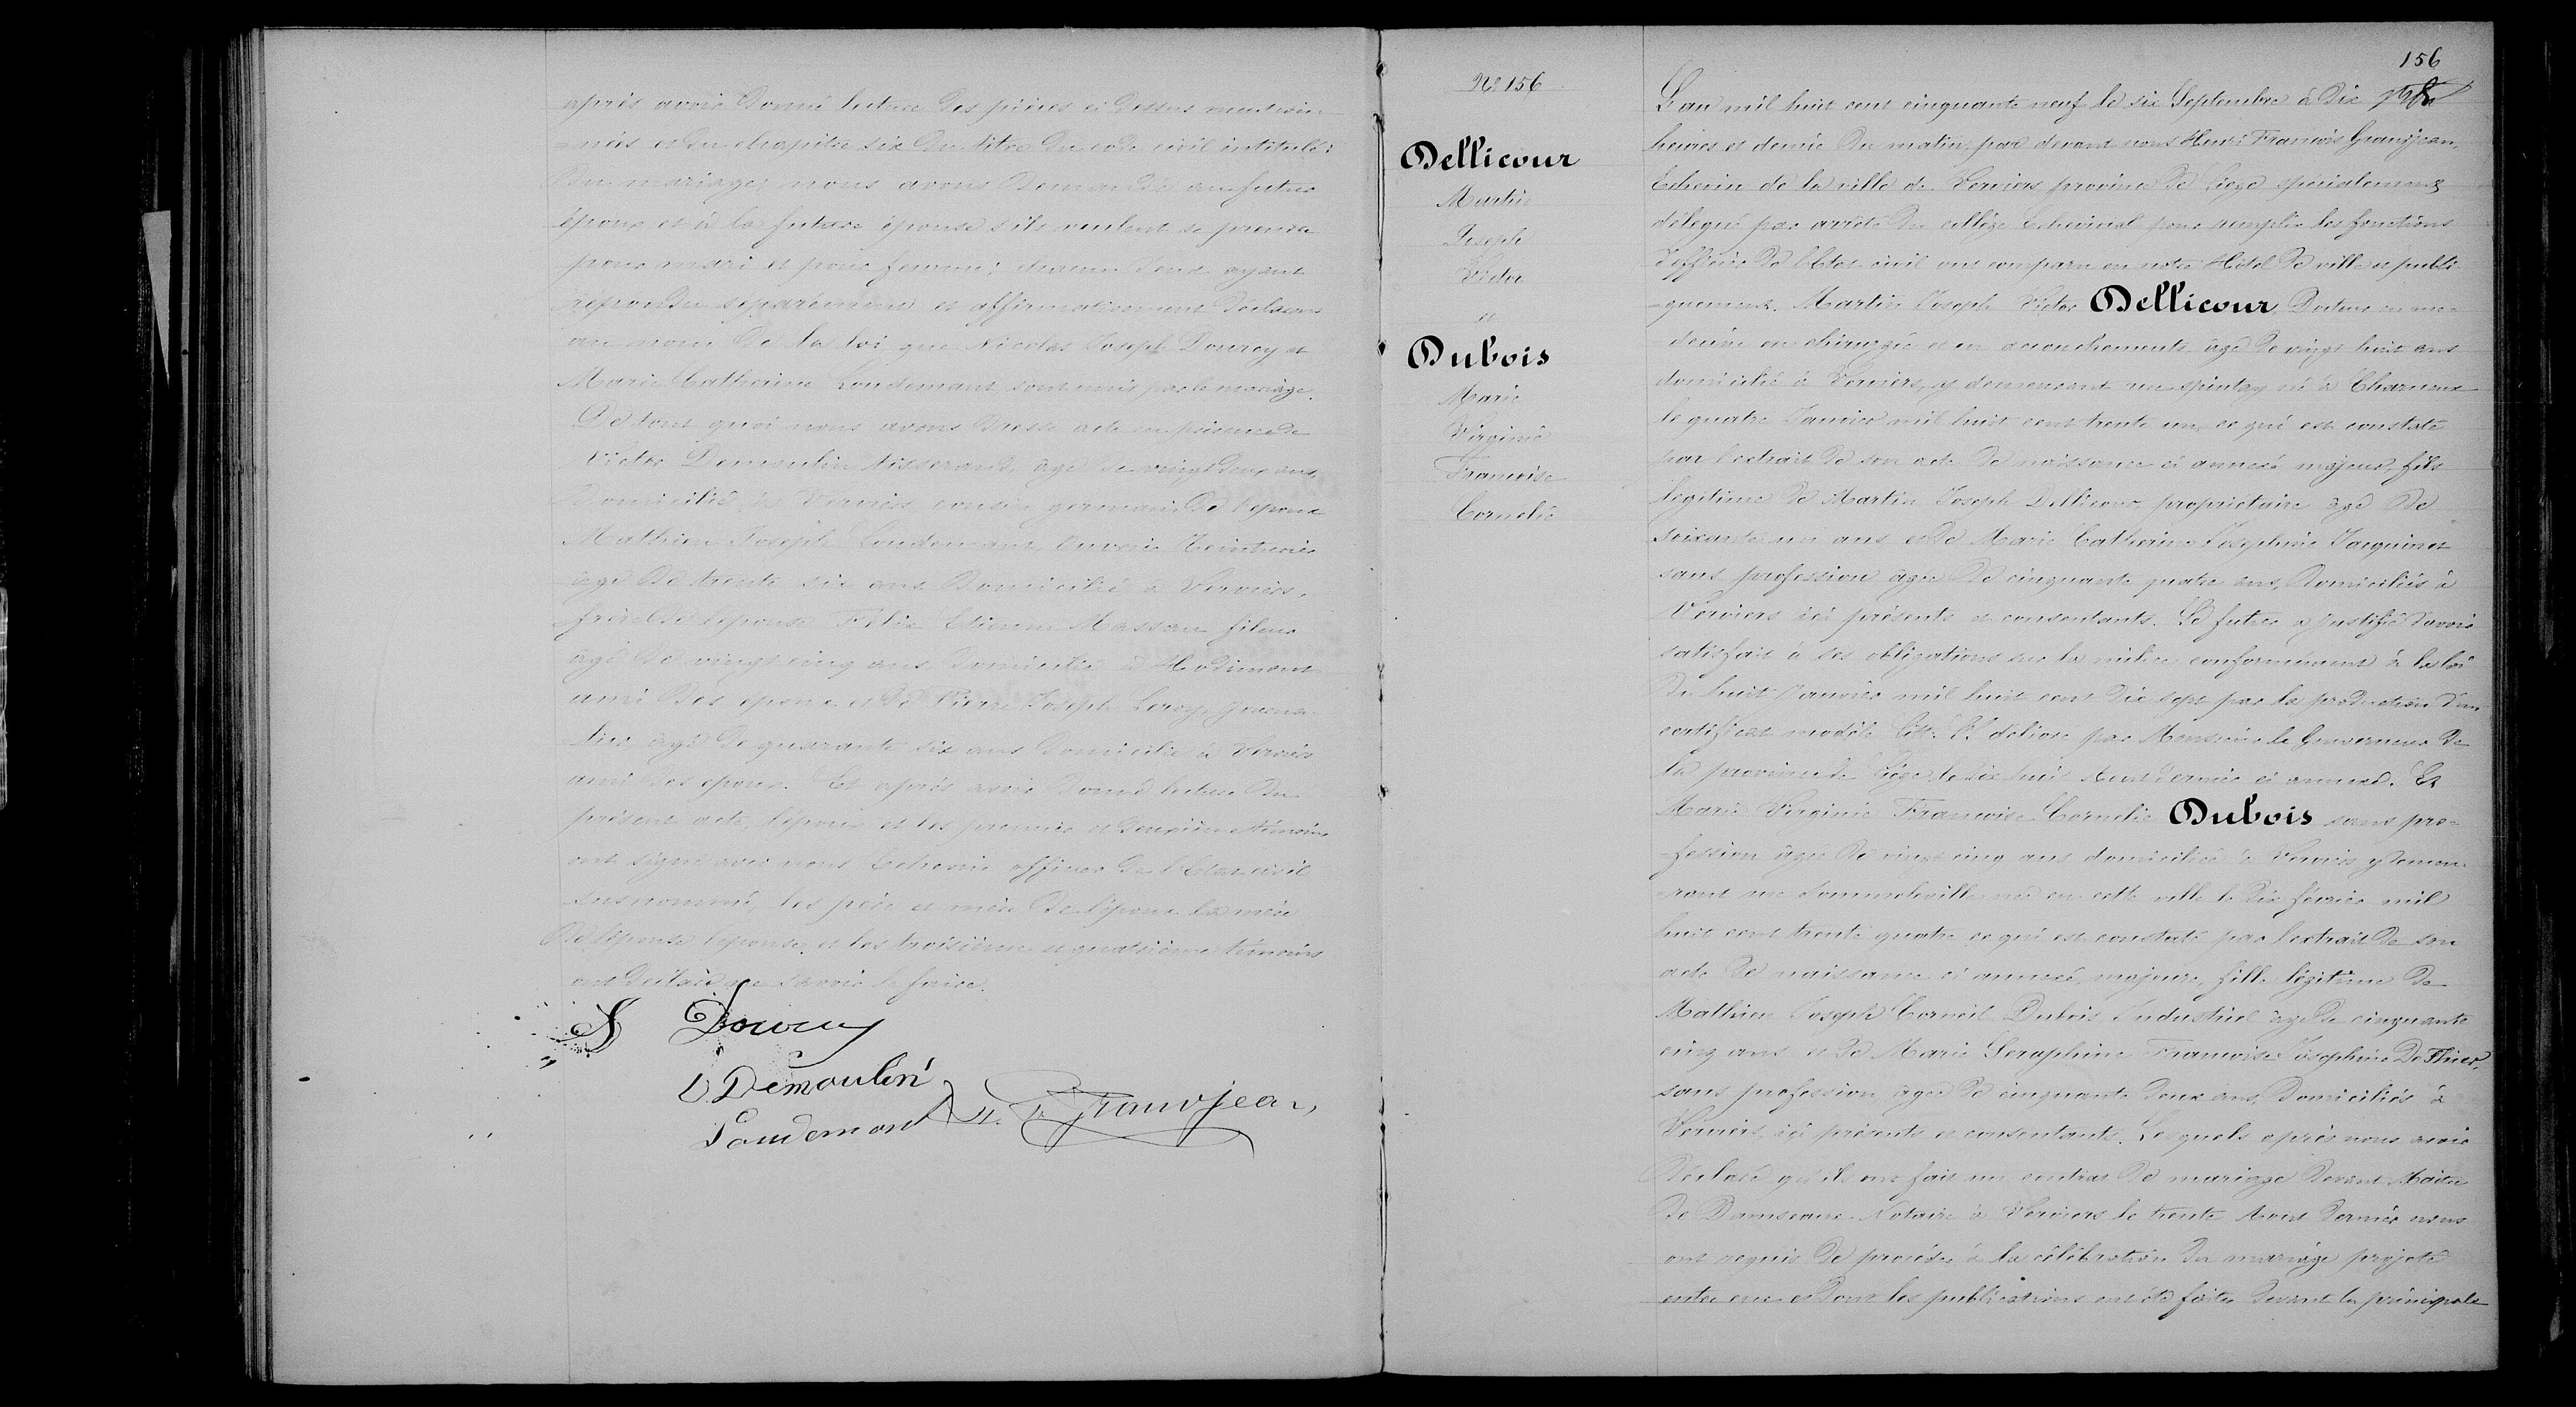 après avoir donné lecture des pièces ci dessus mention-
-nées et du chapitre six du titre du code civil intitulé:
du mariage; nous avons demandé au futur
époux et à la future épouse s'ils veulent se prendre
pour mari et pour femme; chacun d'eux ayant
repondu separément et affirmativement declarons
au nom de la loi que Nicolas Joseph Dourcy et
Marie Catherine Loudemant, sont unis par le mariage.
De tout quoi nous avons dressé acte en présence de
Victor Demoulin tisserand, âgé de vingt deux ans,
domicilié à Verviers, cousin germain de l'epoux
Mathieu Joseph Loudemant, ouvrier Teinturier
âgé de trente six ans domicilié à Verviers,
frère de l'epouse Félix Etienne Massau fileur
âgé de vingt cinq ans domicilié à Hodimont
ami des epoux et de Pierre Joseph Leroy, journa-
-lier, âgé de quarante six ans domicilié à Verviers
ami des epoux. Et après avoir donné lecture du
présent acte, l'époux et les premier et deuxième témoins
ont signé avec nous Echevin officier de l'Etat civil
susnommé, les père et mère de l'époux la mère
de l'épouse l'epouse, et les troisième et quatrième témoins
ont declaré ne savoir le faire.
Dourcy
V. Demoulin
Loudemant H. F. Grandjean,
156
Nº 156
Dellicour
Martin
Joseph
Victor
et
Dubois
Marie
Virginie
Francoise
Cornelie
L'an mil huit cent cinquante neuf le six Septembre à dix
heures et demie du matin, par devant nous Henri François Grandjean,
Echevin de la ville de Verviers province de Liége spécialement
délegué par arrêté du collége Echevinal pour remplir les fonctions
d'officier de l'Etat civil ont comparu en notre Hôtel de ville et publi-
-quement. Martin Joseph Victor Dellicour, Docteur en me-
-decine en chirurgie et en accouchements, âgé de vingt huit ans
domicilié à Verviers, y demeurant rue spintay né à Charneux
le quatre Janvier mil huit cent trente un, ce qui est constaté
par l'extrait de son acte de naissance ci annexé majeur, fils
legitime de Martin Joseph Dellicour propriétaire âgé de
soixante un ans et de Marie Catherine Josephine Jacquinet
sans profession âgée de cinquante quatre ans, domiciliés à
Verviers ici présents et consentants. Le futur a justifié d'avoir
satisfait à ses obligations sur la milice conformément à la loi
du huit Janvier mil huit cent dix sept par la production d'un
certificat modèle délivré par Monsieur le Gouverneur de
la province de Liége le dix huit Aout dernier ci annexé. Et
Marie Virginie Francoise Cornelie Dubois sans pro-
-fession âgée de vingt cinq ans domiciliée à Verviers y demeu-
-rant rue Sommeleville née en cette ville le dix février mil
huit cent trente quatre ce qui est constaté par l'extrait de son
acte de naissance ci annexé, majeure, fille légitime de
Mathieu Joseph Corneil Dubois Industriel âgé de cinquante
cinq ans et de Marie Seraphine Francoise Josephine De Thier,
sans profession âgée de cinquante deux ans, domiciliés à
Verviers, ici présents et consentants. Lesquels après nous avoir
déclaré qu'ils ont fait un contrat de mariage devant Maitre
De Damseaux Notaire à Verviers le trente Aout dernier nous
ont requis de procéder à la célébration du mariage projeté
entre eux et dont les publications ont été faites devant la principale